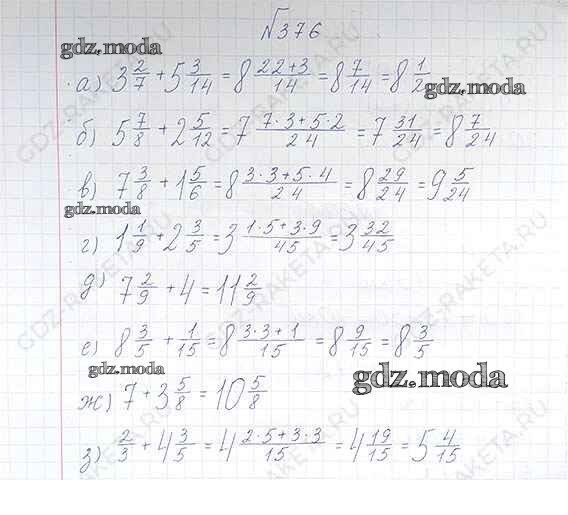 №376
gdz.moda
а) 3 2/7 + 5 3/14 = 8 (22+3)/14 = 8 7/14 = 8 1/2
gdz.moda
б) 5 7/8 + 2 5/12 = 7 (7·3+5·2)/24 = 7 31/24 = 8 7/24
в) 7 3/8 + 1 5/6 = 8 (3·3+5·4)/24 = 8 29/24 = 9 5/24
gdz.moda
г) 1 1/9 + 2 3/5 = 3 (1·5+3·9)/45 = 3 32/45
д) 7 2/9 + 4 = 11 2/9
е) 8 3/5 + 1/15 = 8 (3·3+1)/15 = 8 9/15 = 8 3/5
gdz.moda
gdz.moda
ж) 7 + 3 5/8 = 10 5/8
з) 2/3 + 4 3/5 = 4 (2·5+3·3)/15 = 4 19/15 = 5 4/15
GDZ-RAKETA.RU
GDZ-RAKETA.RU
GDZ-RAKETA.RU
GDZ-RAKETA.RU